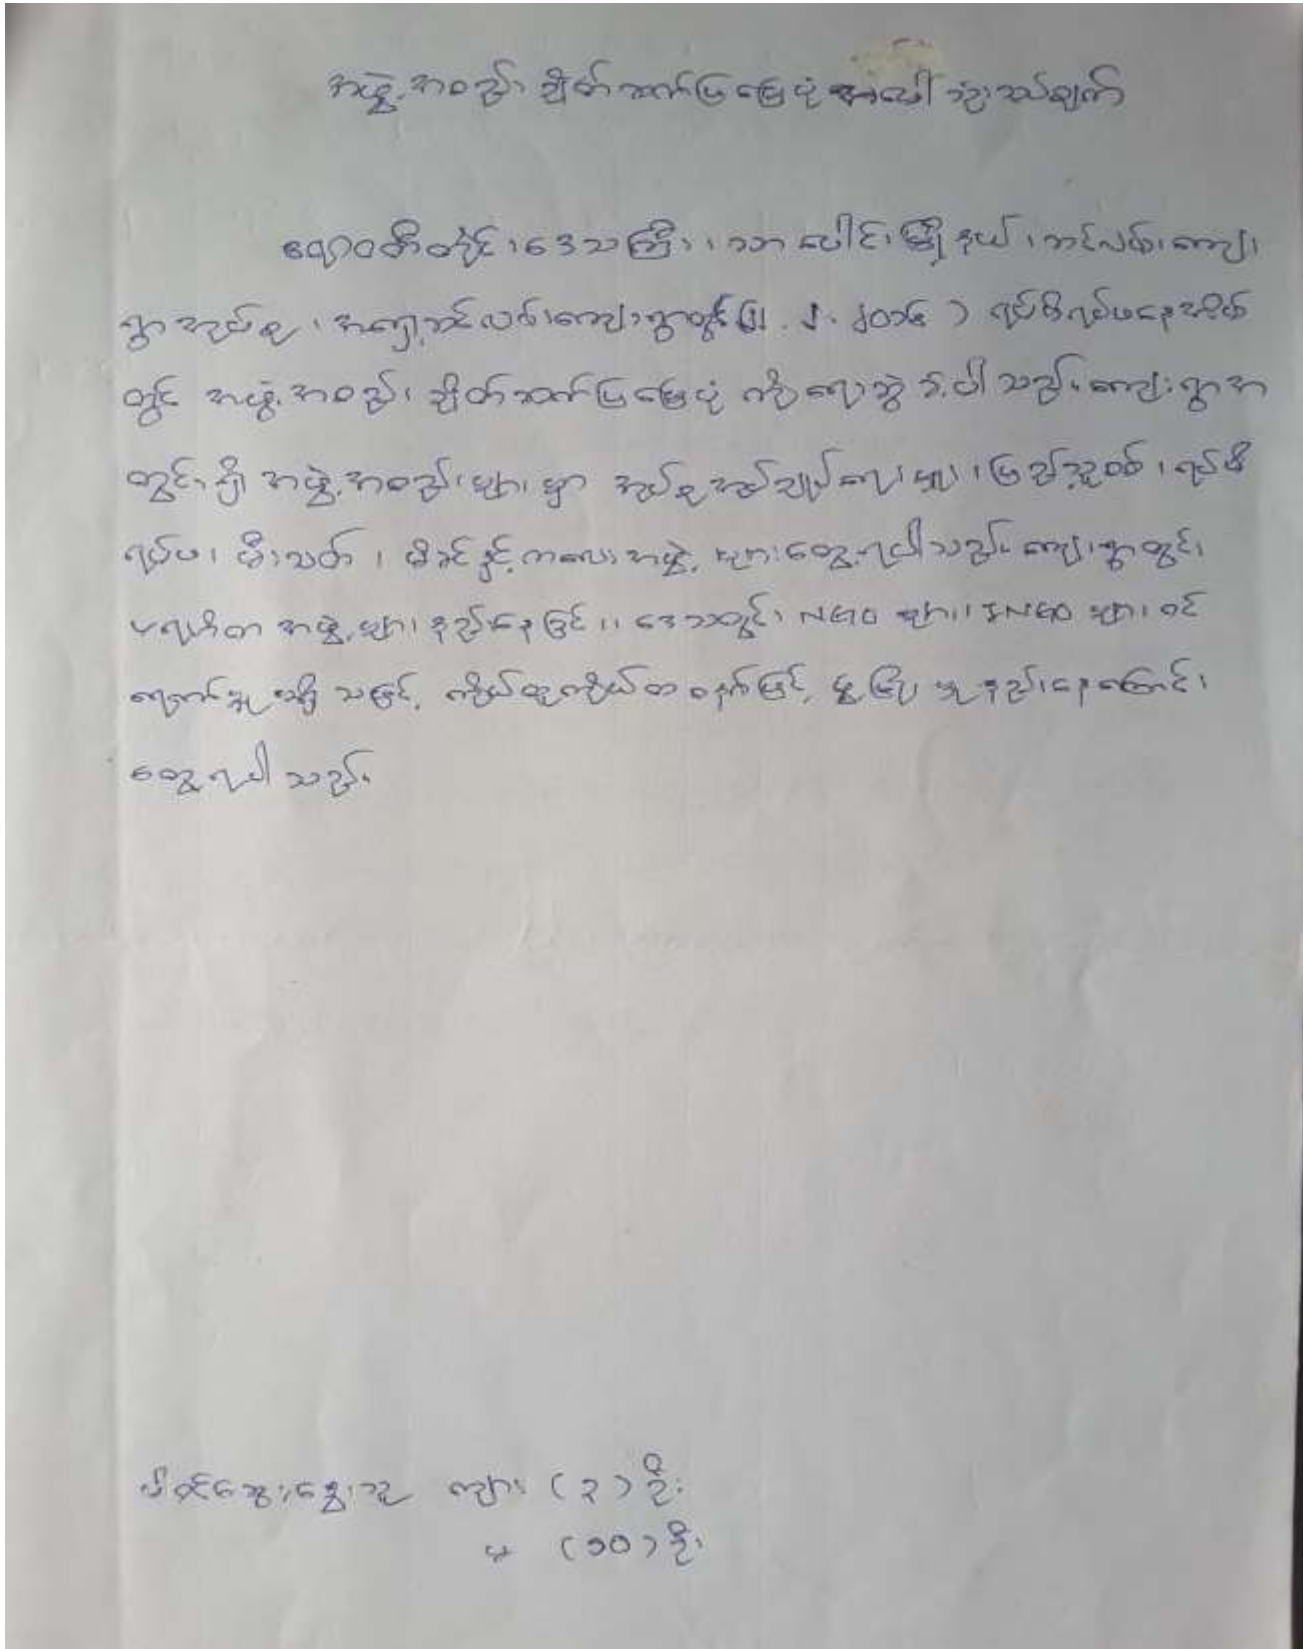 အဖွဲ့အစည်း ချိတ်ဆက်ပြမြေပုံ အပေါ် သုံးသပ်ချက်
ဧရာဝတီတိုင်းဒေသကြီး၊ သာပေါင်းမြို့နယ်၊ ကျေး
ရွာအုပ်စု၊ ကျေးရွာတွင် ရပ်မိရပ်ဖနေအိမ်
တွင် အဖွဲ့အစည်း ချိတ်ဆက်ပြမြေပုံ ကို ရေးဆွဲခဲ့ပါသည်။ ကျေးရွာအ
တွင်းရှိ အဖွဲ့အစည်းများမှာ အုပ်စုအုပ်ချုပ်ရေးမှူး၊ ပြည်သူ့စစ်၊ ရပ်မိ
ရပ်ဖ၊ မီးသတ်၊ မိခင်နှင့်ကလေးအဖွဲ့ များတွေ့ရပါသည်။ ကျေးရွာတွင်း
ပရဟိတ အဖွဲ့များ နည်းနေခြင်း၊ ဒေသတွင်း NGO များ၊ INGO များ ဝင်
ရောက်မှု မရှိသဖြင့် ကိုယ်ထူကိုယ်ထစနစ်ဖြင့် ဖွံ့ဖြိုးမှုနည်းနေကြောင်း
တွေ့ရပါသည်။
ပါဝင်ဆွေးနွေးသူ ကျား (၃) ဦး
မ (၁၀) ဦး